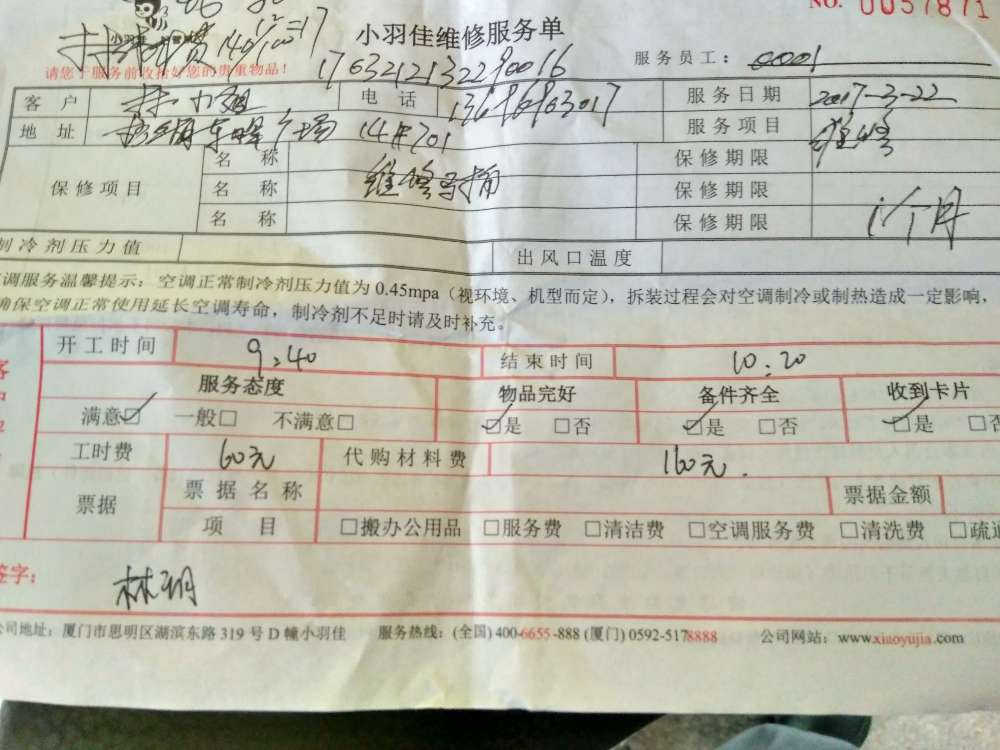 NO. 0057871
小羽佳维修服务单
材料费 140
请您于服务前收拾好您的贵重物品!
1703212132290016
服务员工: 0001
客 户 林小姐 电 话 服务日期 2017-3-22
地 址 东曙广场 14#701 服务项目 维修
保修项目 名 称 保修期限
名 称 维修马桶 保修期限
名 称 保修期限 1个月
制冷剂压力值 出风口温度
调服务温馨提示:空调正常制冷剂压力值为 0.45mpa(视环境、机型而定),拆装过程会对空调制冷或制热造成一定影响,
确保空调正常使用延长空调寿命,制冷剂不足时请及时补充。
开工时间 9:40 结束时间 10:20
服务态度 物品完好 备件齐全 收到卡片
满意☑ 一般□ 不满意□ ☑是 □否 ☑是 □否 ☑是 □否
工时费 60元 代购材料费 160元.
票据 票 据 名 称 票据金额
项 目 □搬办公用品 □服务费 □清洁费 □空调服务费 □清洗费 □疏通
签字: 林玥
公司地址:厦门市思明区湖滨东路 319 号 D 幢小羽佳 服务热线:(全国) 400-6655-888 (厦门) 0592-5178888 公司网站:www.xiaoyujia.com